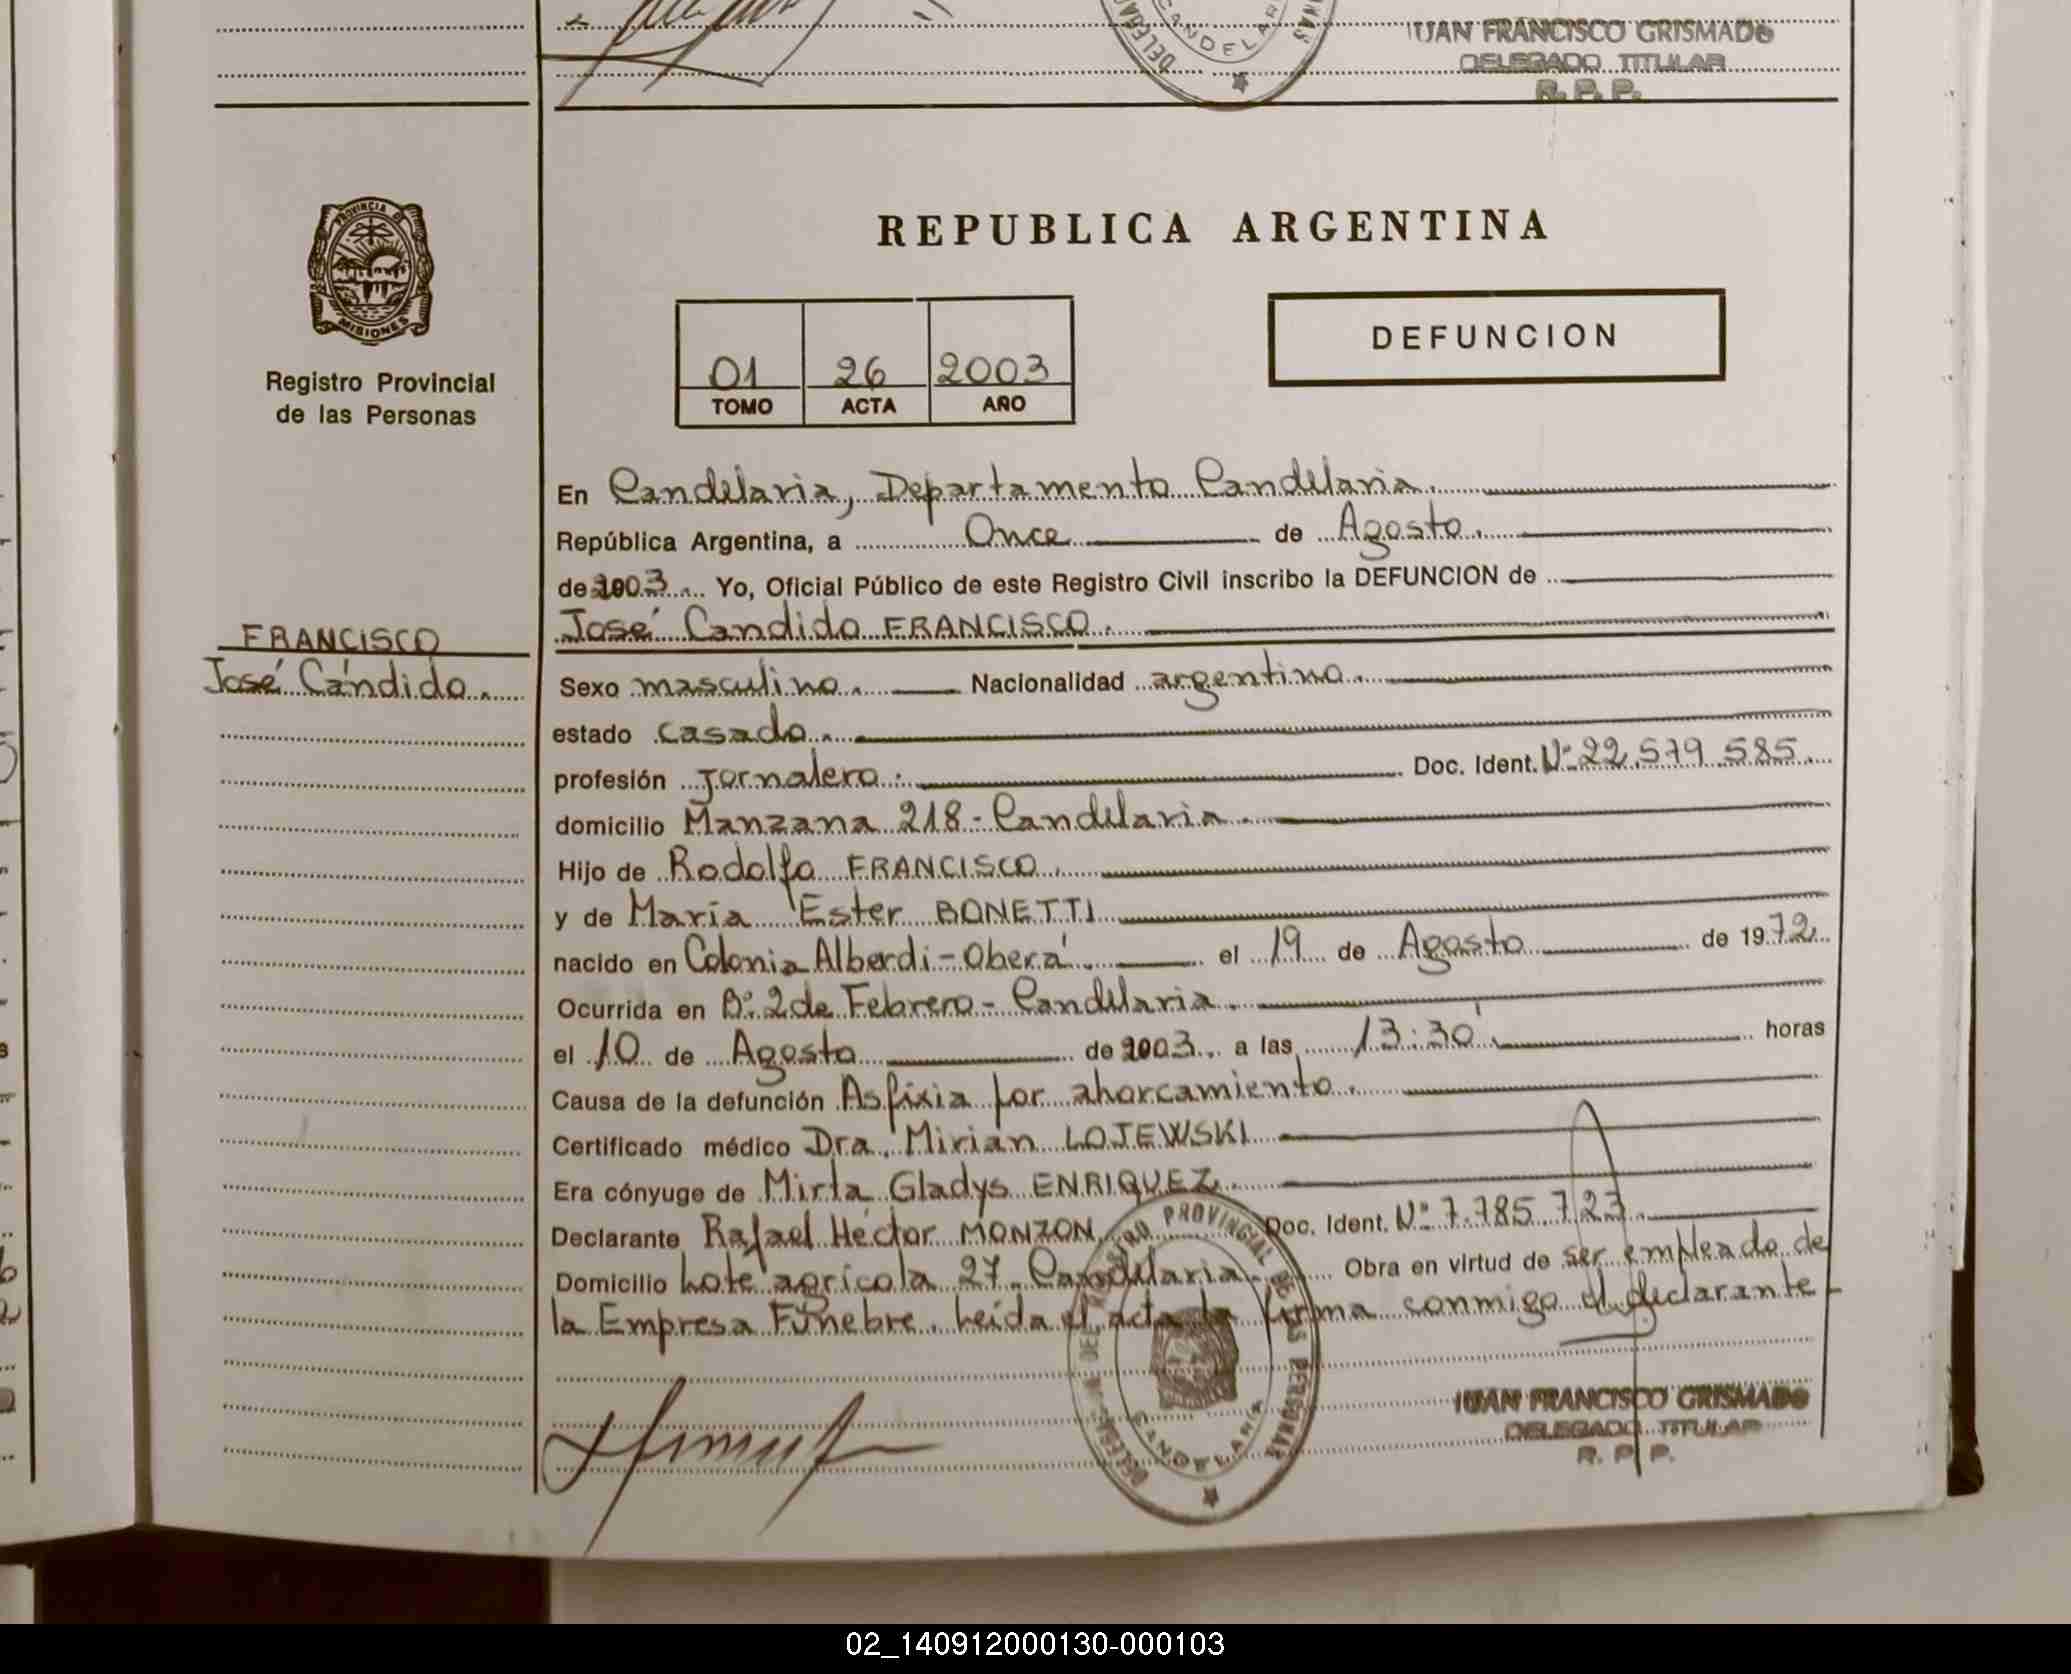 CANDELAR
JUAN FRANCISCO GRISMADO
DELEGADO TITULAR
R. P. P.
PROVINCIA D
MISIONES
Registro Provincial
de las Personas
REPUBLICA ARGENTINA
01 26 2003
TOMO ACTA AÑO
DEFUNCION
En Candelaria, Departamento Candelaria.
República Argentina, a Once de Agosto.
de 2003. Yo, Oficial Público de este Registro Civil inscribo la DEFUNCION de
José Candido FRANCISCO.
FRANCISCO
José Cándido.
Sexo masculino. Nacionalidad argentina.
estado casado.
profesión Jornalero. Doc. Ident. Nº 22.579.585.
domicilio Manzana 218 - Candelaria.
Hijo de Rodolfo FRANCISCO.
y de María Ester BONETTI
nacido en Colonia Alberdi - Oberá. el 19 de Agosto de 1972
Ocurrida en Bº 2 de Febrero - Candelaria.
el 10 de Agosto de 2003. a las 13:30' horas
Causa de la defunción Asfixia por ahorcamiento.
Certificado médico Dra. Mirian LOJEWSKI
Era cónyuge de Mirta Gladys ENRIQUEZ.
Declarante Rafael Héctor MONZON Doc. Ident. Nº 7.785.723.
Domicilio Lote agrícola 27 - Candelaria. Obra en virtud de ser empleado de
la Empresa Fúnebre. Leída el acta la firma conmigo el declarante -
REGISTRO PROVINCIAL DE LAS PERSONAS
CANDELARIA
JUAN FRANCISCO GRISMADO
DELEGADO TITULAR
R. P. P.
02_140912000130-000103